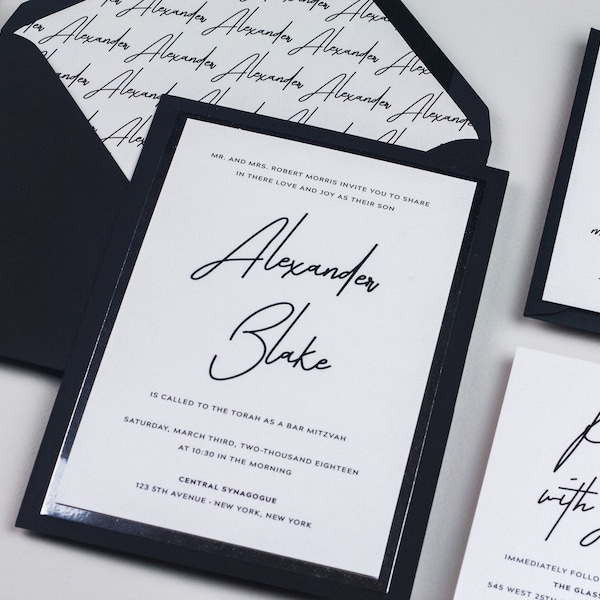 Alexander Alexander Alexander
Alexander Alexander Alexander
Alexander Alexander Alexander
Alexander Alexander Alexander
MR. AND MRS. ROBERT MORRIS INVITE YOU TO SHARE
IN THERE LOVE AND JOY AS THEIR SON
Alexander
Blake
IS CALLED TO THE TORAH AS A BAR MITZVAH
SATURDAY, MARCH THIRD, TWO-THOUSAND EIGHTEEN
AT 10:30 IN THE MORNING
CENTRAL SYNAGOGUE
123 5TH AVENUE - NEW YORK, NEW YORK
with
IMMEDIATELY FOLLOW
THE GLASS
545 WEST 25TH